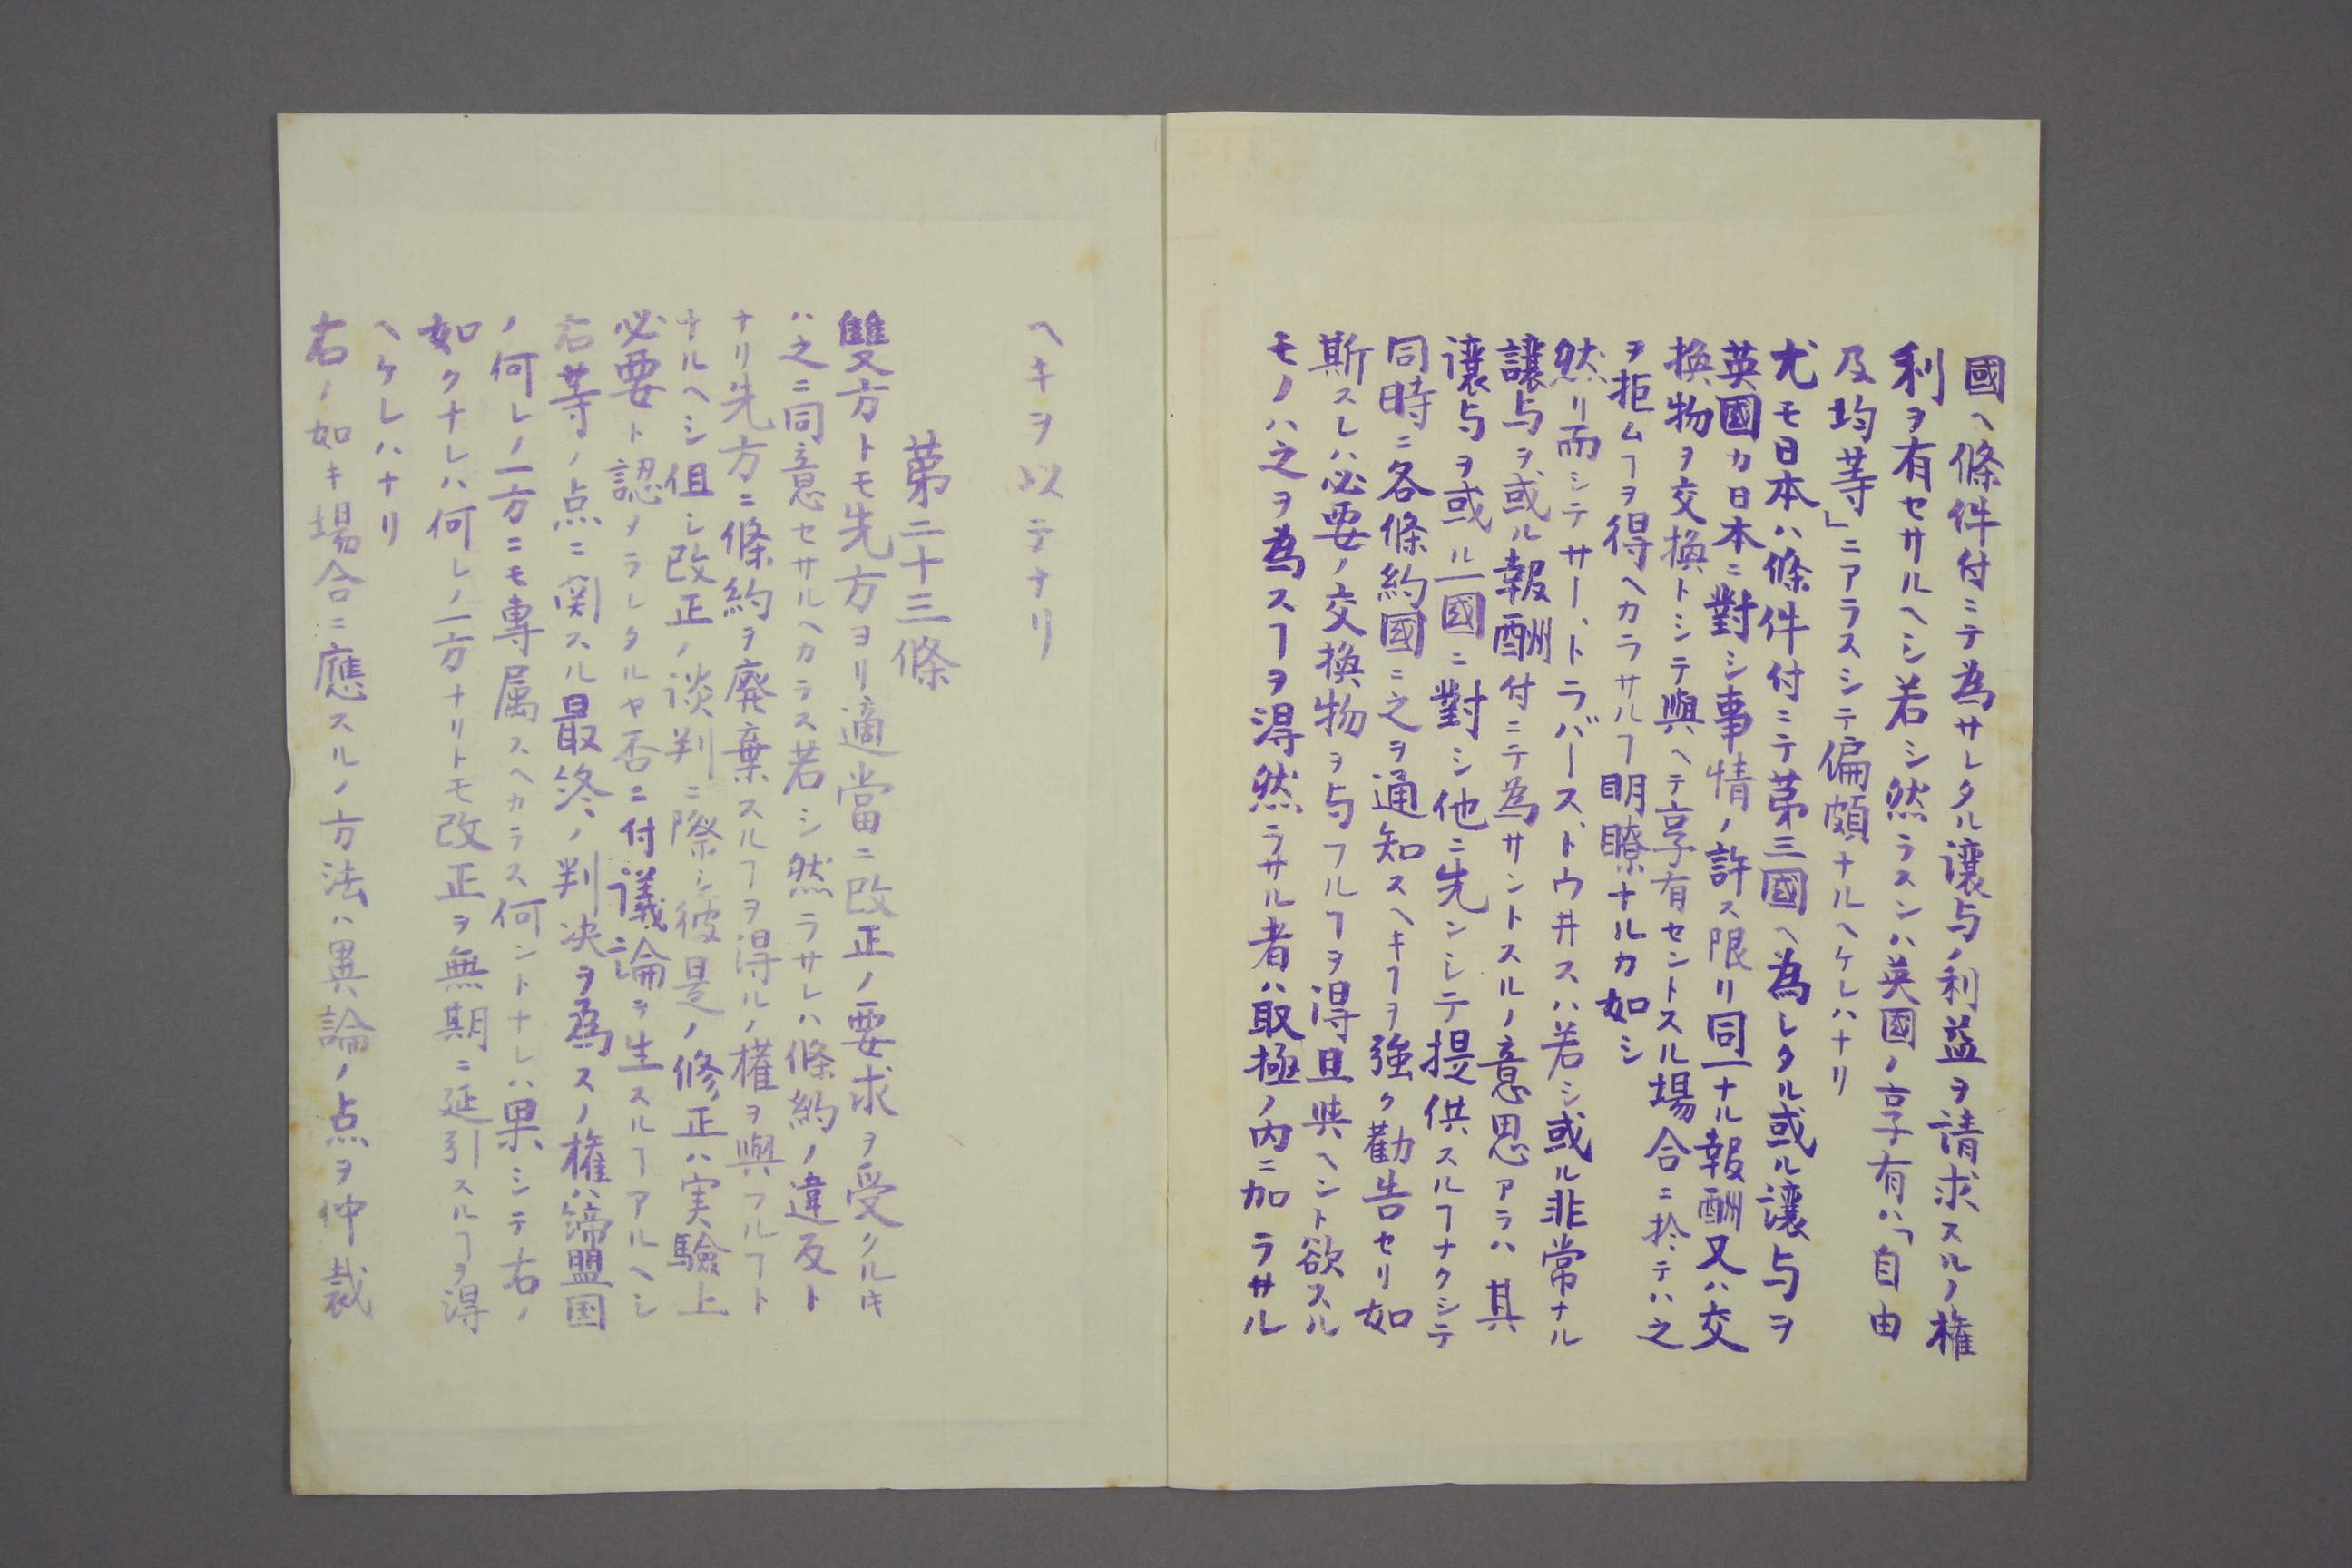 國ヘ條件付ニテ為サレタル讓与ノ利益ヲ請求スルノ権
利ヲ有セサルヘシ若シ然ラスンハ英國ノ享有ハ「自由
及均等」ニアラスシテ偏頗ナルヘケレハナリ
尤モ日本ハ條件付ニテ第三國ヘ為シタル或ル讓与ヲ
英國カ日本ニ對シ事情ノ許ス限リ同一ナル報酬又ハ交
換物ヲ交換トシテ與ヘテ享有セントスル場合ニ於テハ之
ヲ拒ムヿヲ得ヘカラサルヿ明瞭ナルカ如シ
然リ而シテサー、トラバース、トウ井スハ若シ或ル非常ナル
讓与ヲ或ル報酬付ニテ為サントスルノ意思アラハ其
讓与ヲ或ル一國ニ對シ他ニ先ンシテ提供スルヿナクシテ
同時ニ各條約國ニ之ヲ通知スヘキヿヲ強ク勸告セリ如
斯スレハ必要ノ交換物ヲ与フルヿヲ得且與ヘント欲スル
モノハ之ヲ為スヿヲ得然ラサル者ハ取極ノ内ニ加ラサル
ヘキヲ以テナリ
第二十三條
雙方トモ先方ヨリ適當ニ改正ノ要求ヲ受クル𪜈
ハ之ニ同意セサルヘカラス若シ然ラサレハ條約ノ違反ト
ナリ先方ニ條約ヲ廢棄スルヿヲ得ルノ權ヲ與フルヿト
ナルヘシ但シ改正ノ談判ニ際シ彼是ノ修正ハ実驗上
必要ト認メラレタルヤ否ニ付議論ヲ生スルヿアルヘシ
右等ノ点ニ関スル最終ノ判决ヲ為スノ権ハ締盟国
ノ何レノ一方ニモ專属スヘカラス何ントナレハ果シテ右ノ
如クナレハ何レノ一方ナリトモ改正ヲ無期ニ延引スルヿヲ得
ヘケレハナリ
右ノ如キ場合ニ應スルノ方法ハ異論ノ点ヲ仲裁